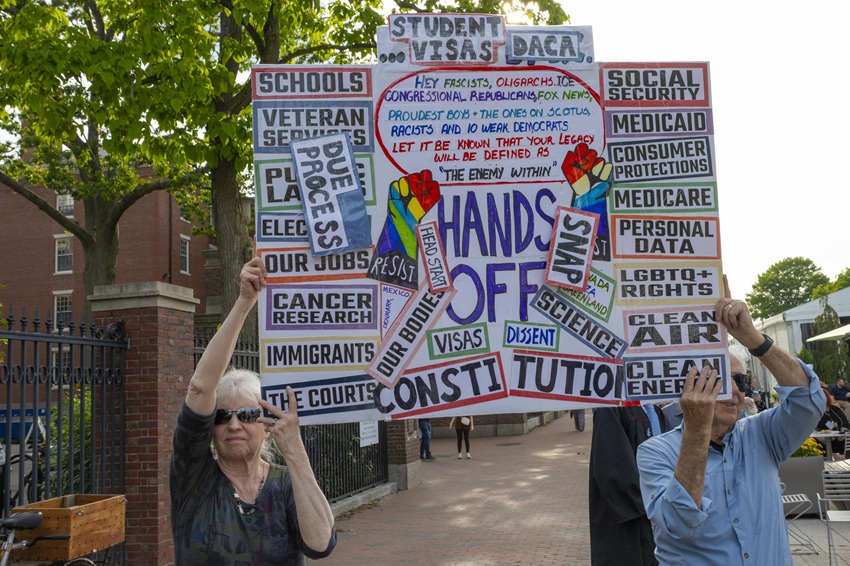 ... STUDENT
VISAS
DACA...
SCHOOLS
VETERAN
SERVICES
DUE
PROCESS
OUR JOBS
CANCER
RESEARCH
IMMIGRANTS
THE COURTS
HEY FASCISTS, OLIGARCHS, ICE
CONGRESSIONAL REPUBLICANS, FOX NEWS,
PROUDEST BOYS + THE ONES ON SCOTUS,
RACISTS AND 10 WEAK DEMOCRATS
LET IT BE KNOWN THAT YOUR LEGACY
WILL BE DEFINED AS
"THE ENEMY WITHIN"
HANDS
OFF
RESIST
HEAD START
SNAP
MEXICO
DENMARK
GREENLAND
OUR BODIES
VISAS
DISSENT
SCIENCE
CONSTITUTION
SOCIAL
SECURITY
MEDICAID
CONSUMER
PROTECTIONS
MEDICARE
PERSONAL
DATA
LGBTQ+
RIGHTS
CLEAN
AIR
CLEAN